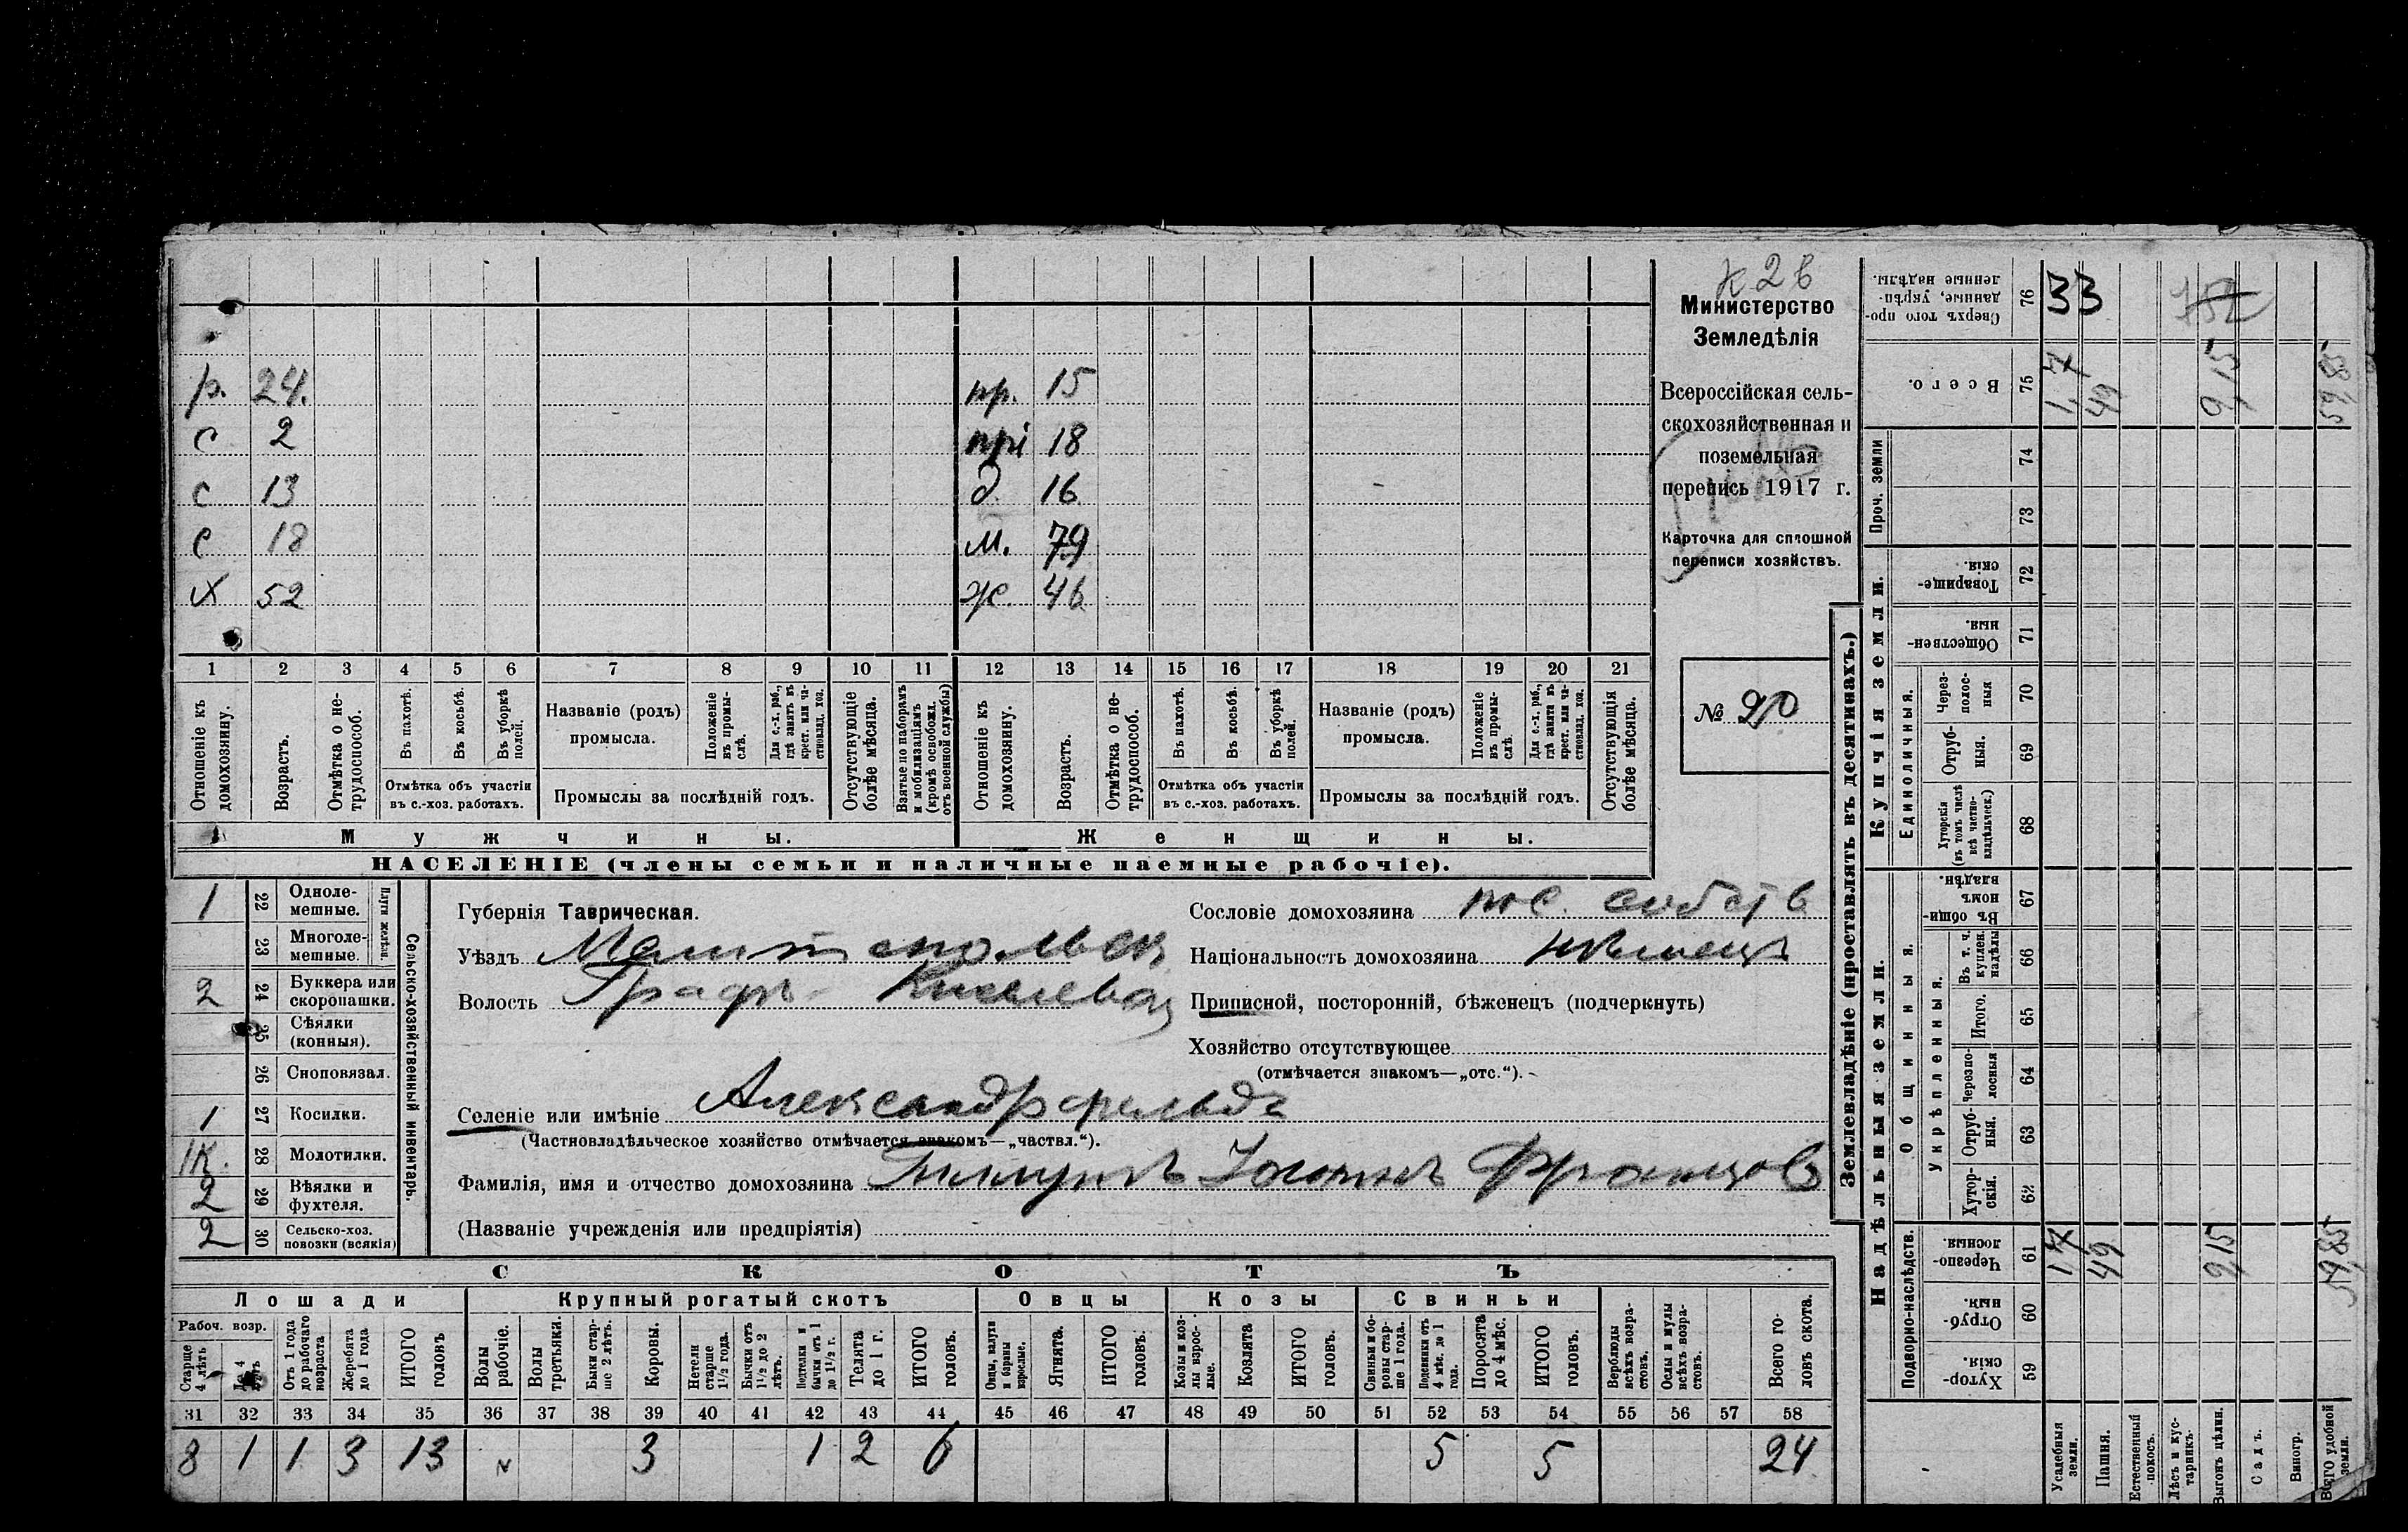 К 2 в
Министерство
Земледѣлія
Всероссійская сель-
скохозяйственная и
поземельная
перепись 1917 г.
Карточка для сплошной
переписи хозяйствъ.
№ 20
р. 24. пр. 15
с 2 прі 18
с 13 д. 16
с 18 м. 79
х 52 ж. 46
1 2 3 4 5 6 7 8 9 10 11 12 13 14 15 16 17 18 19 20 21
Отношеніе къ домохозяину.
Возрастъ.
Отмѣтка о не-трудоспособ.
Въ пахотѣ.
Въ косьбѣ.
Въ уборкѣ полей.
Отмѣтка объ участіи въ с.-хоз. работахъ.
Названіе (родъ) промысла.
Положеніе въ промы-слѣ.
Для с.-х. раб., гдѣ занятъ въ крест. или ча-стновлад. хоз.
Промыслы за послѣдній годъ.
Отсутствующіе болѣе мѣсяца.
Взятые по наборамъ и мобилизаціямъ (кромѣ освобожд. отъ военной службы)
Отношеніе къ домохозяину.
Возрастъ.
Отмѣтка о не-трудоспособ.
Въ пахотѣ.
Въ косьбѣ.
Въ уборкѣ полей.
Отмѣтка объ участіи въ с.-хоз. работахъ.
Названіе (родъ) промысла.
Положеніе въ промы-слѣ.
Для с.-х. раб., гдѣ занята въ крест. или ча-стновлад. хоз.
Промыслы за послѣдній годъ.
Отсутствующія болѣе мѣсяца.
Мужчины. Женщины.
НАСЕЛЕНІЕ (члены семьи и наличные наемные рабочіе).
Сельско-хозяйственный инвентарь.
Плуги желѣзн.
1 22 Одноле-мешные.
23 Многоле-мешные.
2 24 Буккера или скоропашки.
25 Сѣялки (конныя).
26 Сноповязал.
1 27 Косилки.
1К. 28 Молотилки.
2 29 Вѣялки и фухтеля.
2 30 Сельско-хоз. повозки (всякія)
Губернія Таврическая.
Уѣздъ Мелитопольск
Волость Графъ-Киселевск
Селеніе или имѣніе Александрфельдъ
(Частновладѣльческое хозяйство отмѣчается знакомъ—„частвл.“).
Фамилія, имя и отчество домохозяина Францов
(Названіе учрежденія или предпріятія)
Сословіе домохозяина пос. собств
Національность домохозяина нѣмецъ
Приписной, посторонній, бѣженецъ (подчеркнуть)
Хозяйство отсутствующее
(отмѣчается знакомъ—„отс.“).
СКОТЪ
Лошади Крупный рогатый скотъ Овцы Козы Свиньи
Рабоч. возр.
Старше 4 лѣтъ
До 4 лѣтъ
Отъ 1 года до рабочаго возраста
Жеребята до 1 года
ИТОГО головъ
Волы рабочіе.
Волы третьяки.
Быки стар-ше 2 лѣтъ.
Коровы.
Нетели старше 1½ года.
Бычки отъ 1½ до 2 лѣтъ.
Подтелки и бычки отъ 1 до 1½ г.
Телята до 1 г.
ИТОГО головъ.
Овцы, валухи и бараны взрослые.
Ягнята.
ИТОГО головъ.
Козы и коз-лы взрос-лые.
Козлята
ИТОГО головъ.
Свиньи и бо-ровы стар-ше 1 года.
Подсвинки отъ 4 мѣс. до 1 года.
Поросята до 4 мѣс.
ИТОГО головъ.
Верблюды всѣхъ возра-стовъ.
Ослы и мулы всѣхъ возра-стовъ.
Всего го-ловъ скота.
31 32 33 34 35 36 37 38 39 40 41 42 43 44 45 46 47 48 49 50 51 52 53 54 55 56 57 58
8 1 1 3 13 3 1 2 6 5 5 24
Землевладѣніе (проставлять въ десятинахъ.)
Надѣльныя земли. Купчія земли.
Подворно-наслѣдств.
Общинныя.
Укрѣпленныя.
Единоличныя.
Проч. земли
Сверхъ того про-данные, укрѣп-ленные надѣлы. 76 33
Всего. 75 1,7 49 9,15 59,85
74
73
Товарище-скія. 72
Обществен-ныя. 71
Через-полос-ныя 70
Отруб-ныя. 69
Хуторскія (въ томъ числѣ всѣ частно-владѣльческ.) 68
Въ общин-номъ владѣн. 67
Въ т. ч. куплен. надѣлы 66
Итого. 65
Черезпо-лосныя 64
Отруб-ныя. 63
Хутор-скія. 62
Черезпо-лосныя. 61 1,7 49 9,15 59,85
Отруб-ныя. 60
Хутор-скія. 59
Усадебныя земли.
Пашня.
Естественный покосъ.
Лѣсъ и кус-тарникъ.
Выгонъ цѣлин.
Садъ.
Виногр.
ВСЕГО удобной земли.